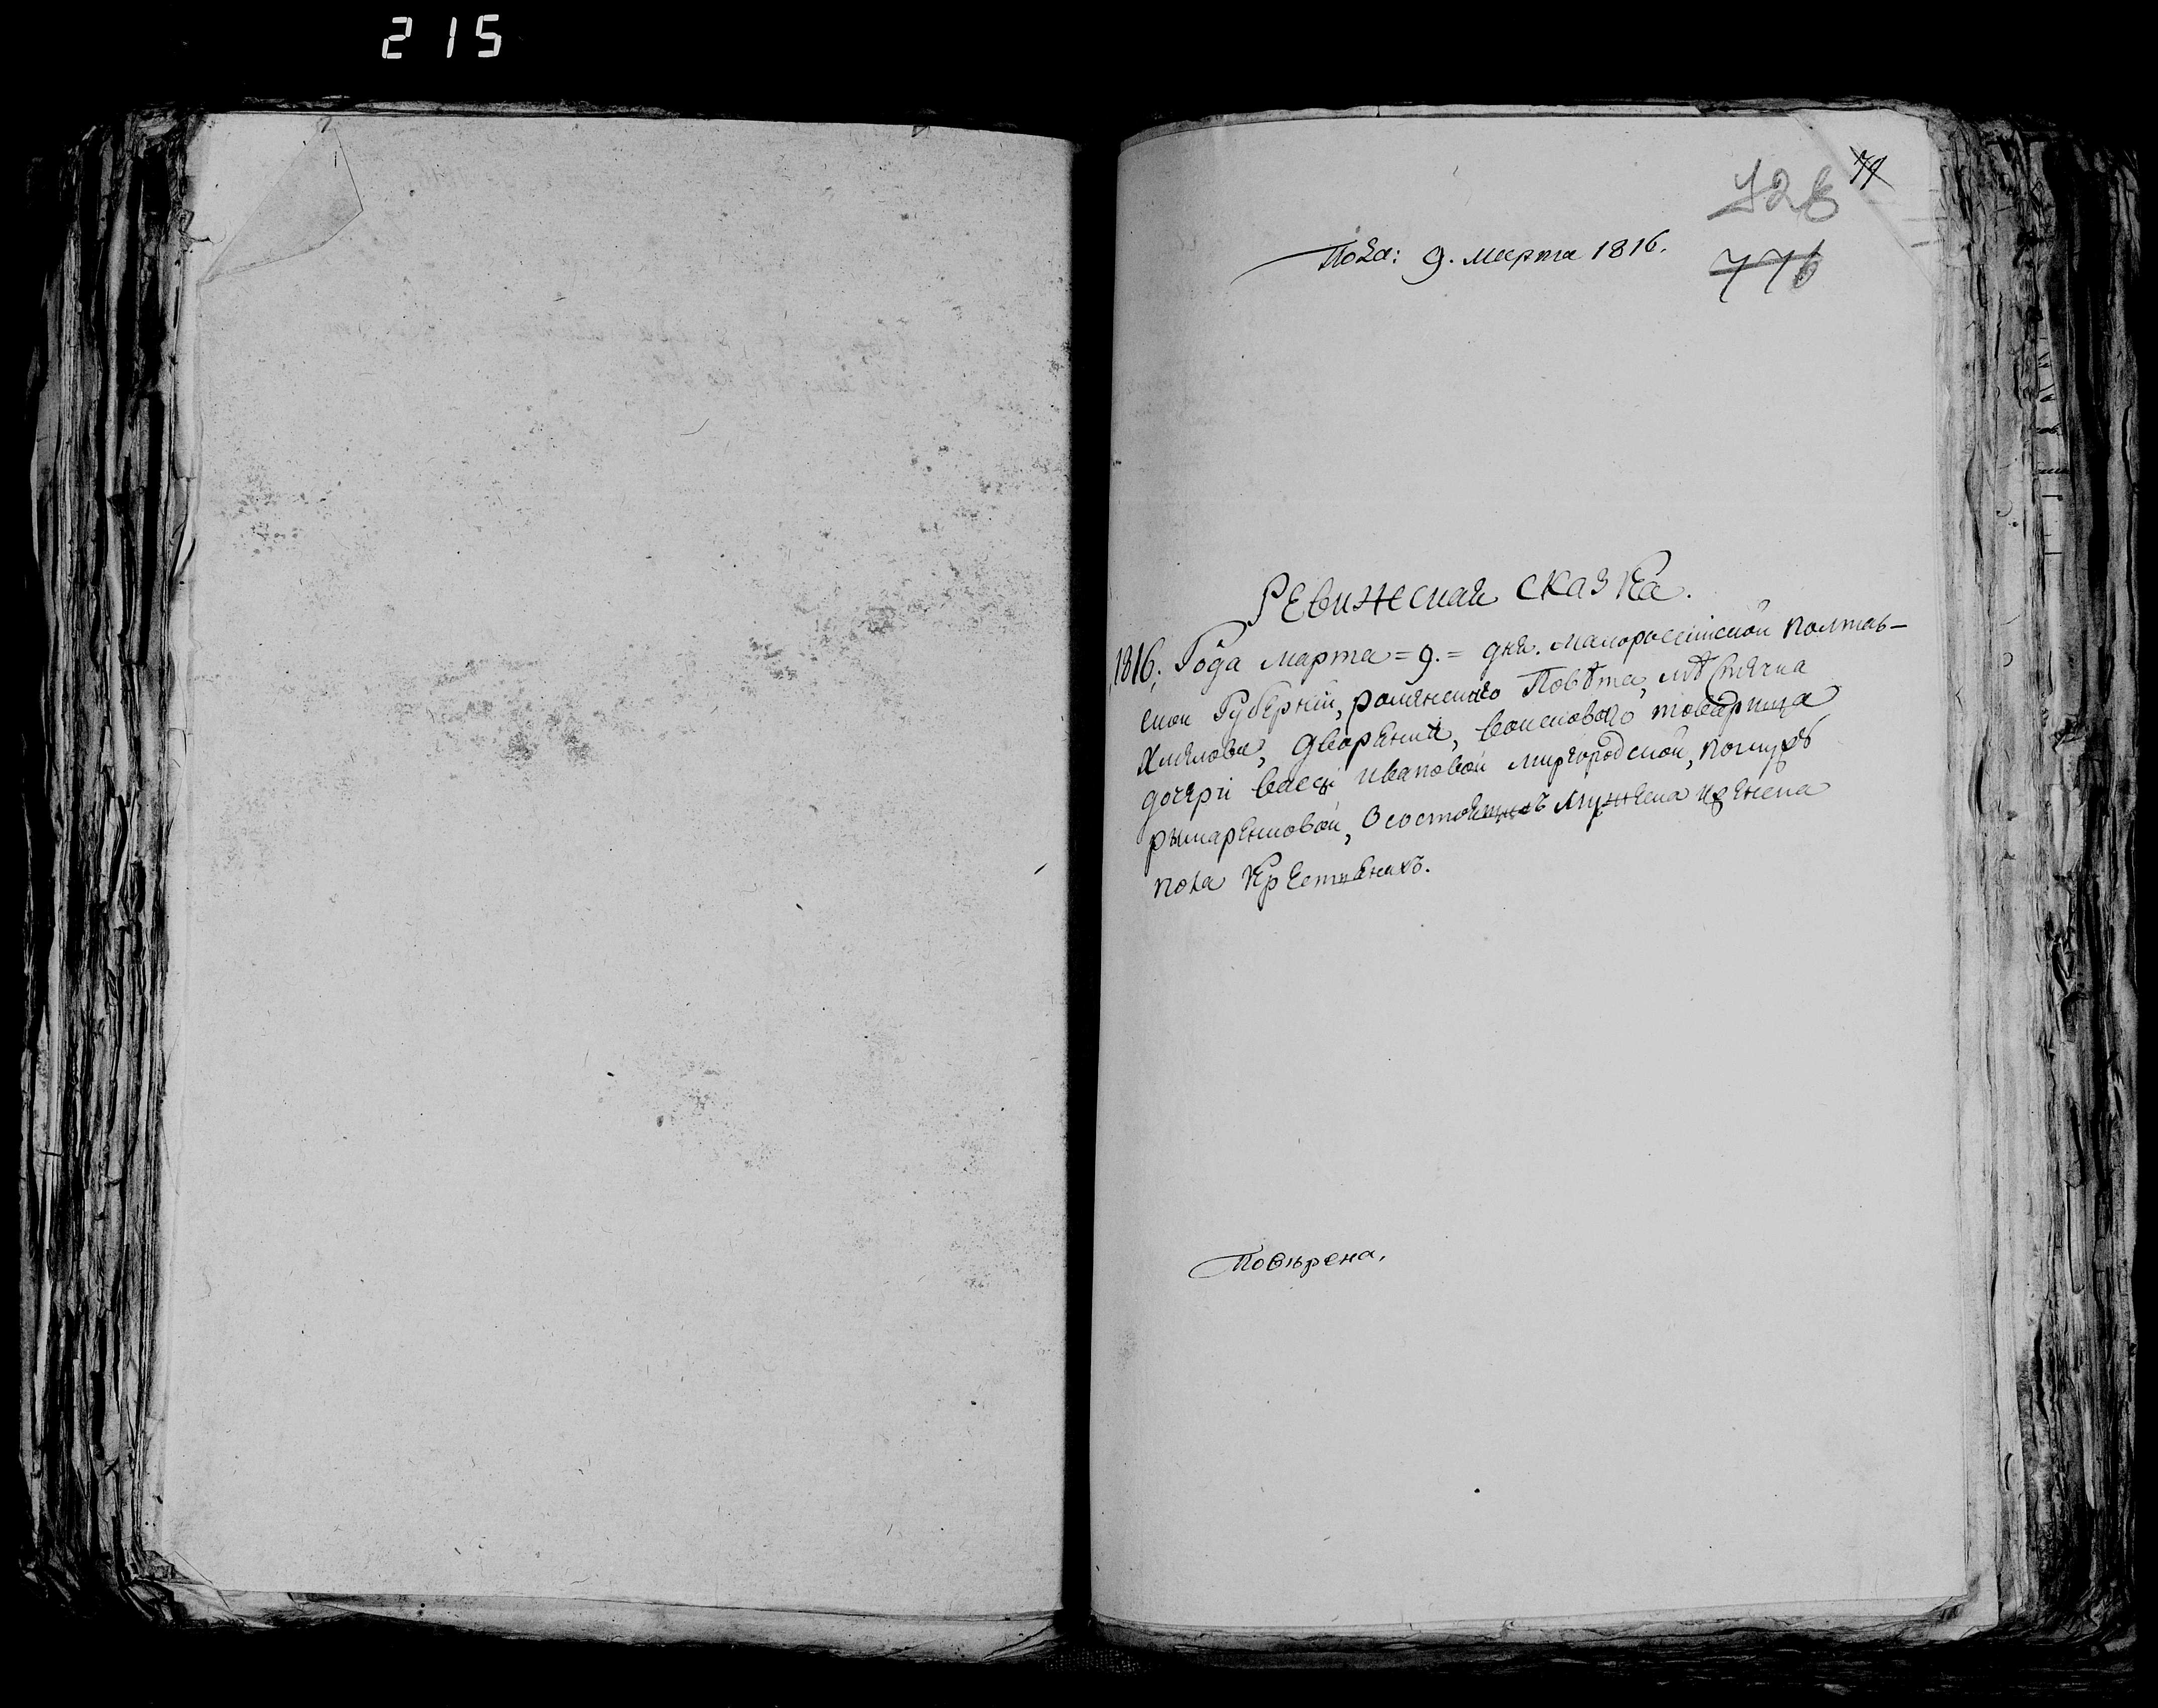 215
74
728
776
Пода: 9. марта 1816.
Ревижская сказка.
1816; Года марта = 9. = дня. малоросийской полтав-
ской Губернїи, роменского Повѣта, мѣстечка
Хмелова, дворянки, войскового товарища
дочери Ивановой миргородской, помужѣ
рымаренковой, О состоящихъ мужеска иженска
пола Крестьянахъ.
Повѣрена,